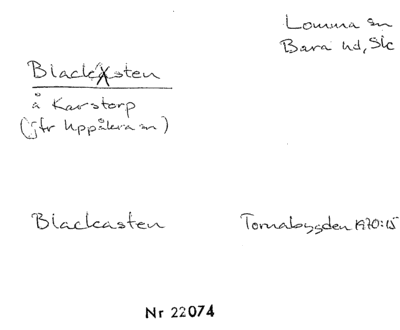 Lomma sn
Bara hd, Sk
Blackasten
å Karstorp
(jfr Uppåkra sn)
Blackasten Tornabygden 1970:15
Nr 22074